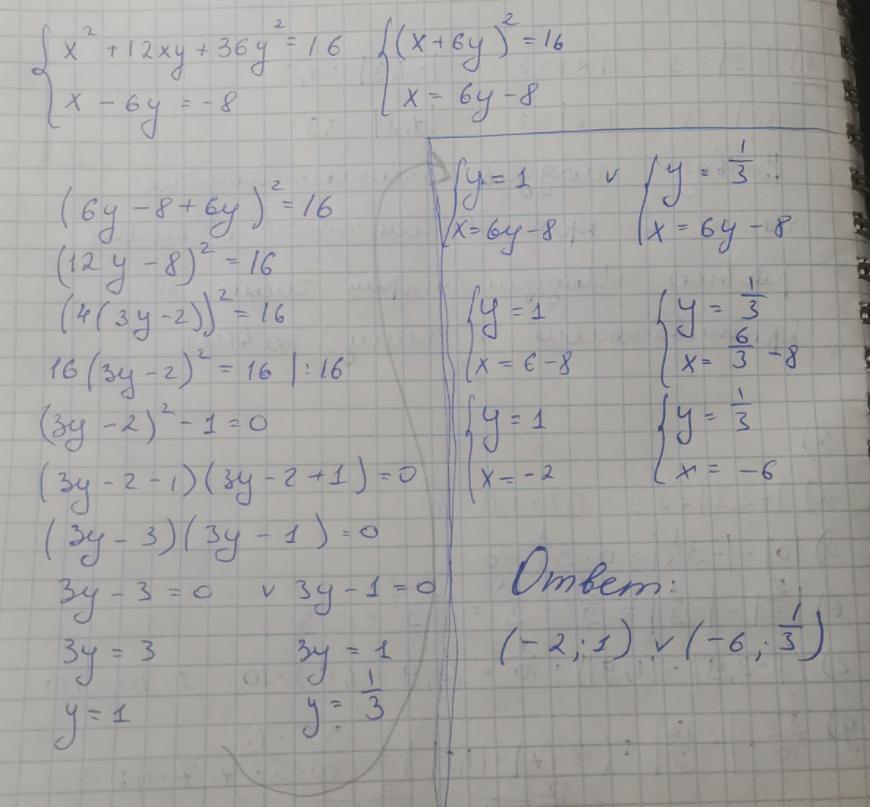 { x² + 12xy + 36y² = 16 { (x + 6y)² = 16
x − 6y = −8 x = 6y − 8
(6y − 8 + 6y)² = 16
(12y − 8)² = 16
(4(3y − 2))² = 16
16(3y − 2)² = 16 | : 16
(3y − 2)² − 1 = 0
(3y − 2 − 1)(3y − 2 + 1) = 0
(3y − 3)(3y − 1) = 0
3y − 3 = 0 ∨ 3y − 1 = 0
3y = 3 3y = 1
y = 1 y = 1/3
{ y = 1 ∨ { y = 1/3
x = 6y − 8 x = 6y − 8
{ y = 1 { y = 1/3
x = 6 − 8 x = 6/3 − 8
{ y = 1 { y = 1/3
x = −2 x = −6
Ответ:
(−2; 1) ∨ (−6; 1/3)